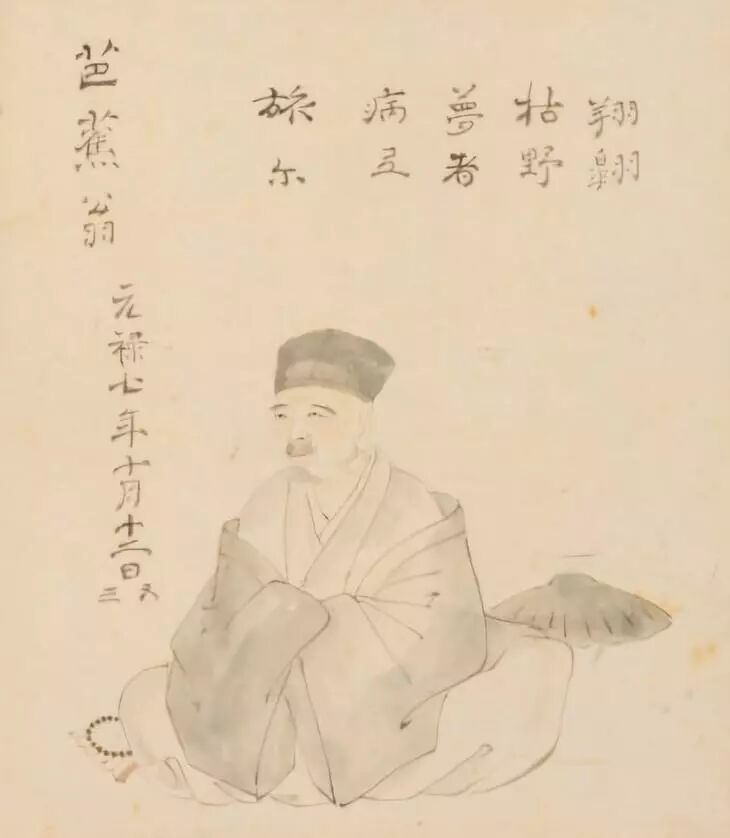 芭蕉翁
元禄七年十月十二日
旅尓
病弖
夢者
枯野
翔翺